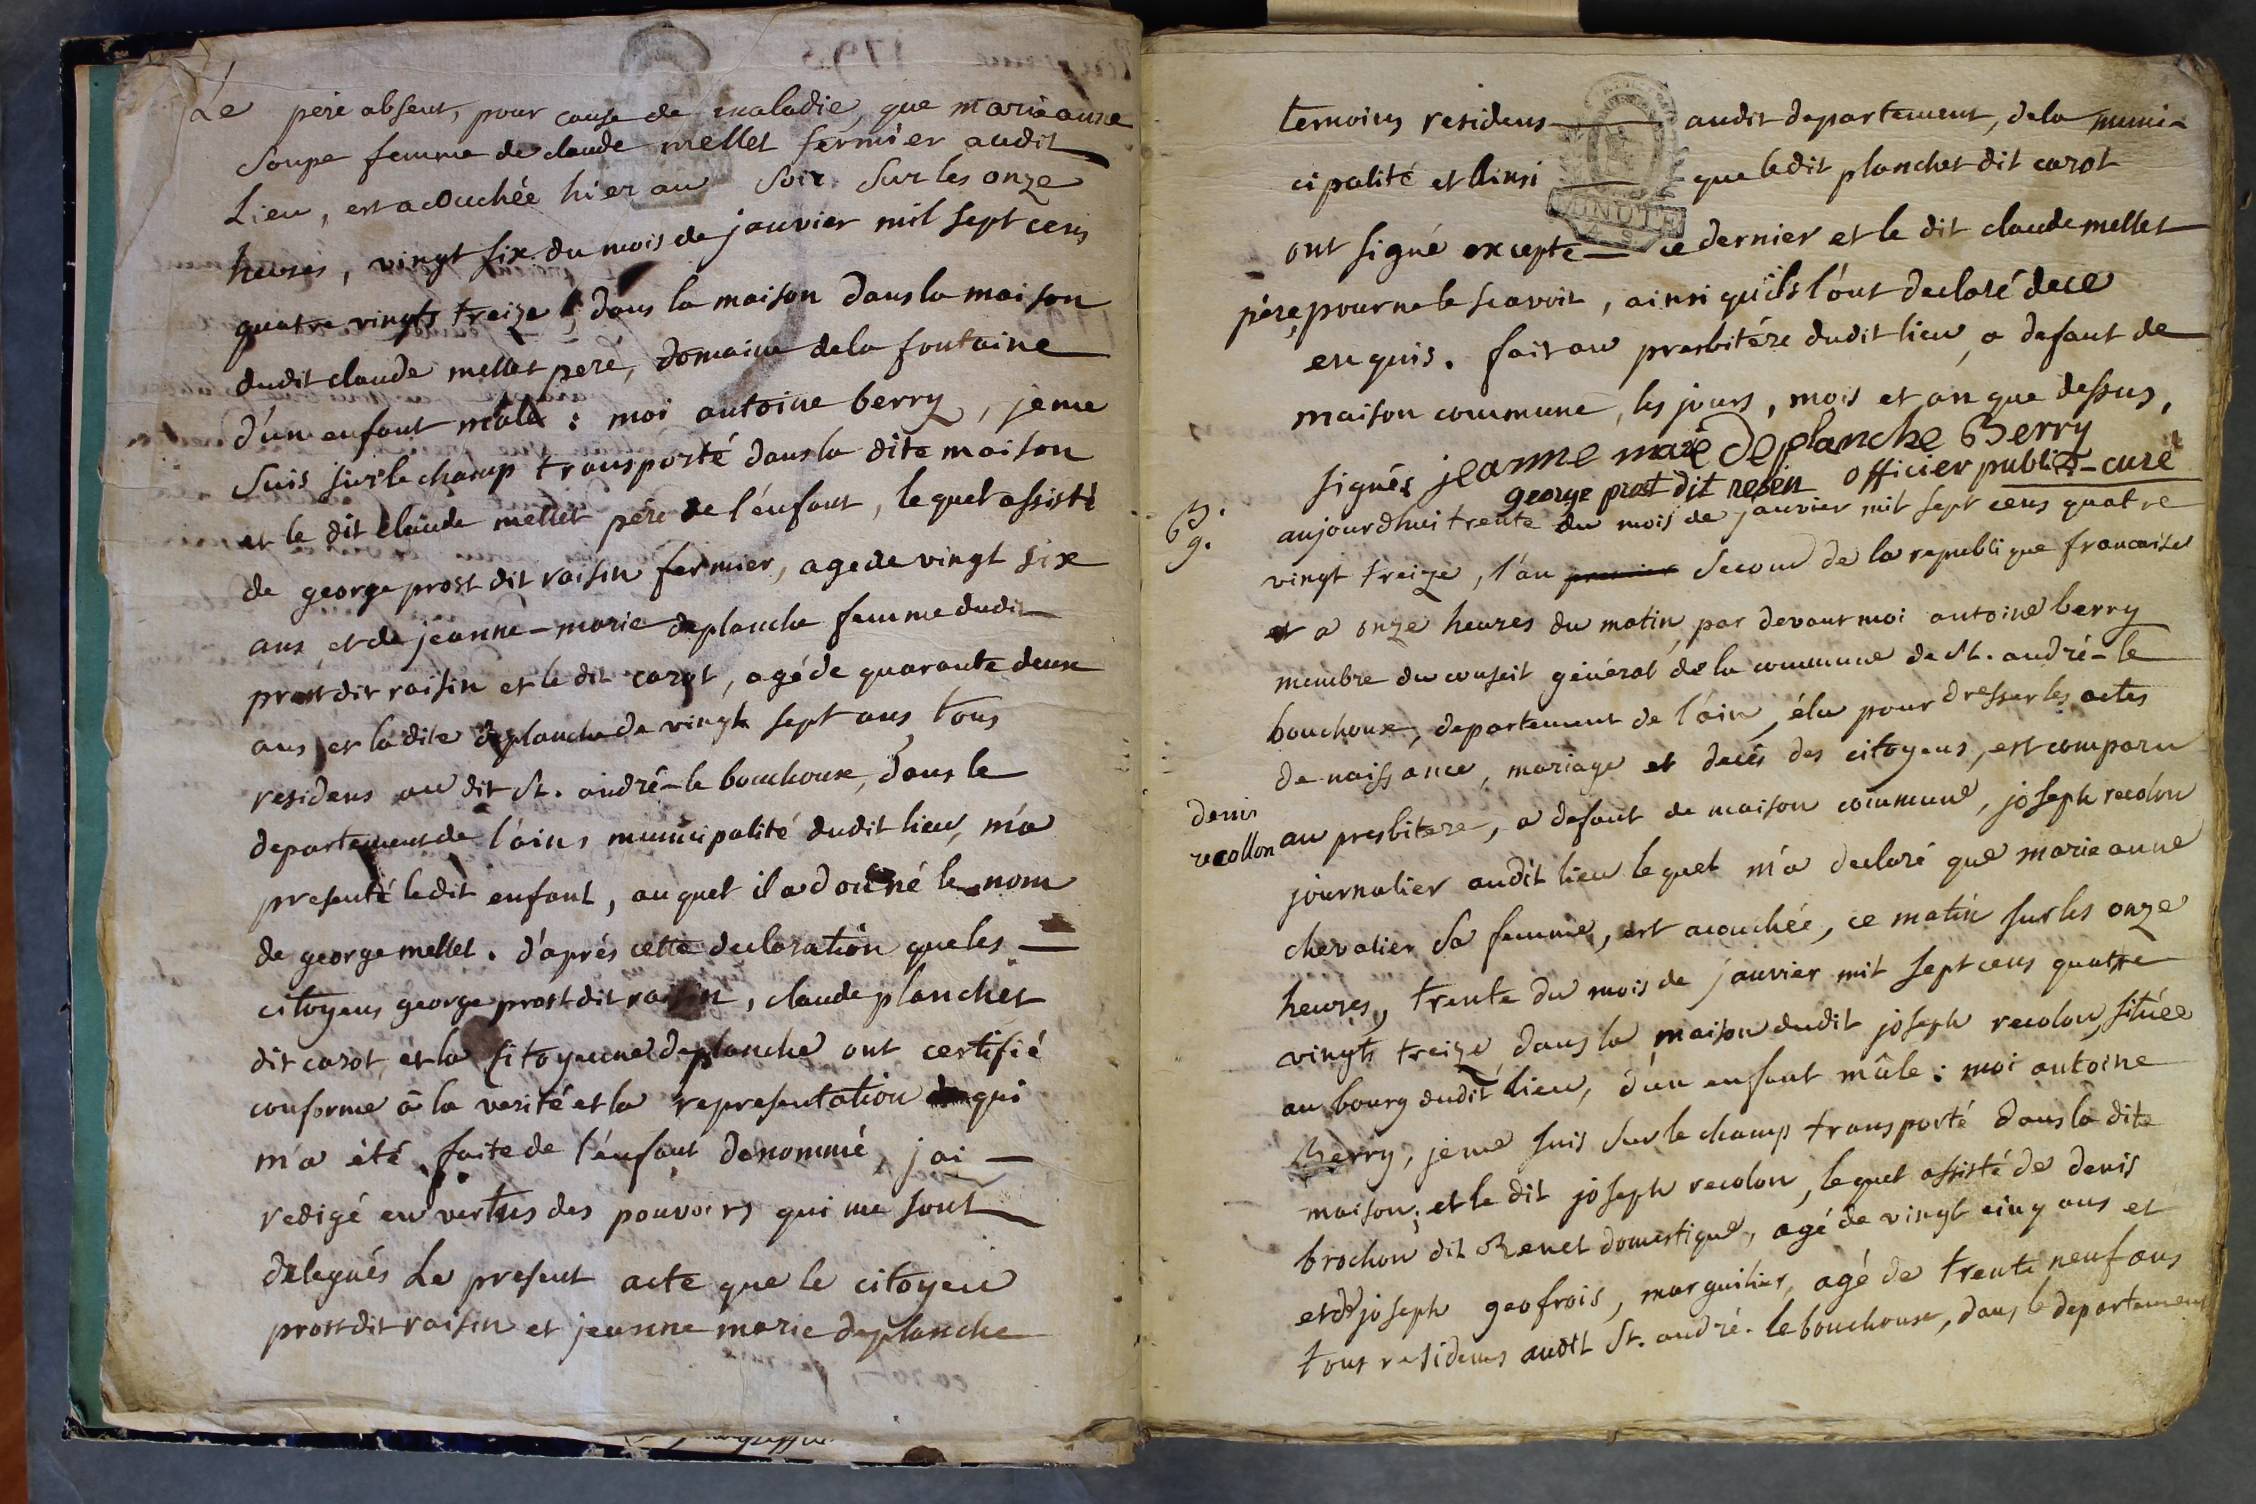 Le pere absent, pour cause de maladie, que marie anne
Soupe femme de claude mellet fermier audit
Lieu, est acouchée hier au Soir Sur les onze
heures, vingt six du mois de janvier mil sept cens
quatre vingts treize, dans la maison dans la maison
dudit claude mellet peré, domaine dela fontaine
d'un enfant mâle : moi antoine berry, je me
Suis sur le champ transporté dans la dite maison
et le dit claude mellet pére de l'énfant, le quel assisté
de george prost dit raisin fermier, age de vingt six
ans et de jeanne-marie deplanche femme dudit
prost dit raisin et le dit carot, agé de quarante deux
ans et la dite deplanche de vingt sept ans, tous
residens au dit St. andré-le bouchoux, dans le
departement de l'ain, municipalité dudit lieu, m'a
presenté ledit enfant, au quel il a donné le nom
de george mellet. d'aprés cette declaration que les
citoyens george prost dit raisin, claude planchet
dit carot, et la citoyenne deplanche ont certifié
conforme à la verité et la representation qui
m'a été faite de l'énfant denommé, j'ai
redigé en vertus des pouvoirs qui me sont
delegués Le present acte que le citoyen
prost dit raisin et jeanne marie deplanche
temoins residens audit departement, dela muni-
cipalité et Ainsi que ledit planchet dit carot
MINUTE
ont signé excepte ce dernier et le dit claude mellet
pére, pour ne le scavoir, ainsi qu'ils l'ont declaré de ce
enquis. fait au presbitére dudit lieu, a defaut de
maison commune, les jours, mois et an que dessus,
signés jeanne marie Deplanche Berry
george prost dit resin officier public-curé
aujourdhui trente du mois de janvier mil sept cens quatre
vingt treize, l'an premier Second de la republique francaise
et a onze heures du matin, par devant moi antoine berry
membre du conseil général de la commune de St. andré-le
bouchoux, departement de l'ain, élu pour dresser les actes
de naissance, mariage et decés des citoyens, est comparu
denis
recollon
au presbitere, a defaut de maison commune, joseph recolon
journalier audit lieu le quel m'a declaré que marie anne
chevalier Sa femme, est acouchée, ce matin sur les onze
heures, trente du mois de janvier mil sept cens quatre
vingts treize, dans la maison dudit joseph recolon, située
au bourg dudit lieu, d'un enfant mâle : moi antoine
Berry, je me suis sur le champ transporté dans la dite
maison; et le dit joseph recolon, le quel assisté de denis
brochon dit Renet domestique, agé de vingt cinq ans et
et de joseph geofrois, marguilier, agé de trente neuf ans
tous residens audit St. andré-le bouchoux, dans le departement